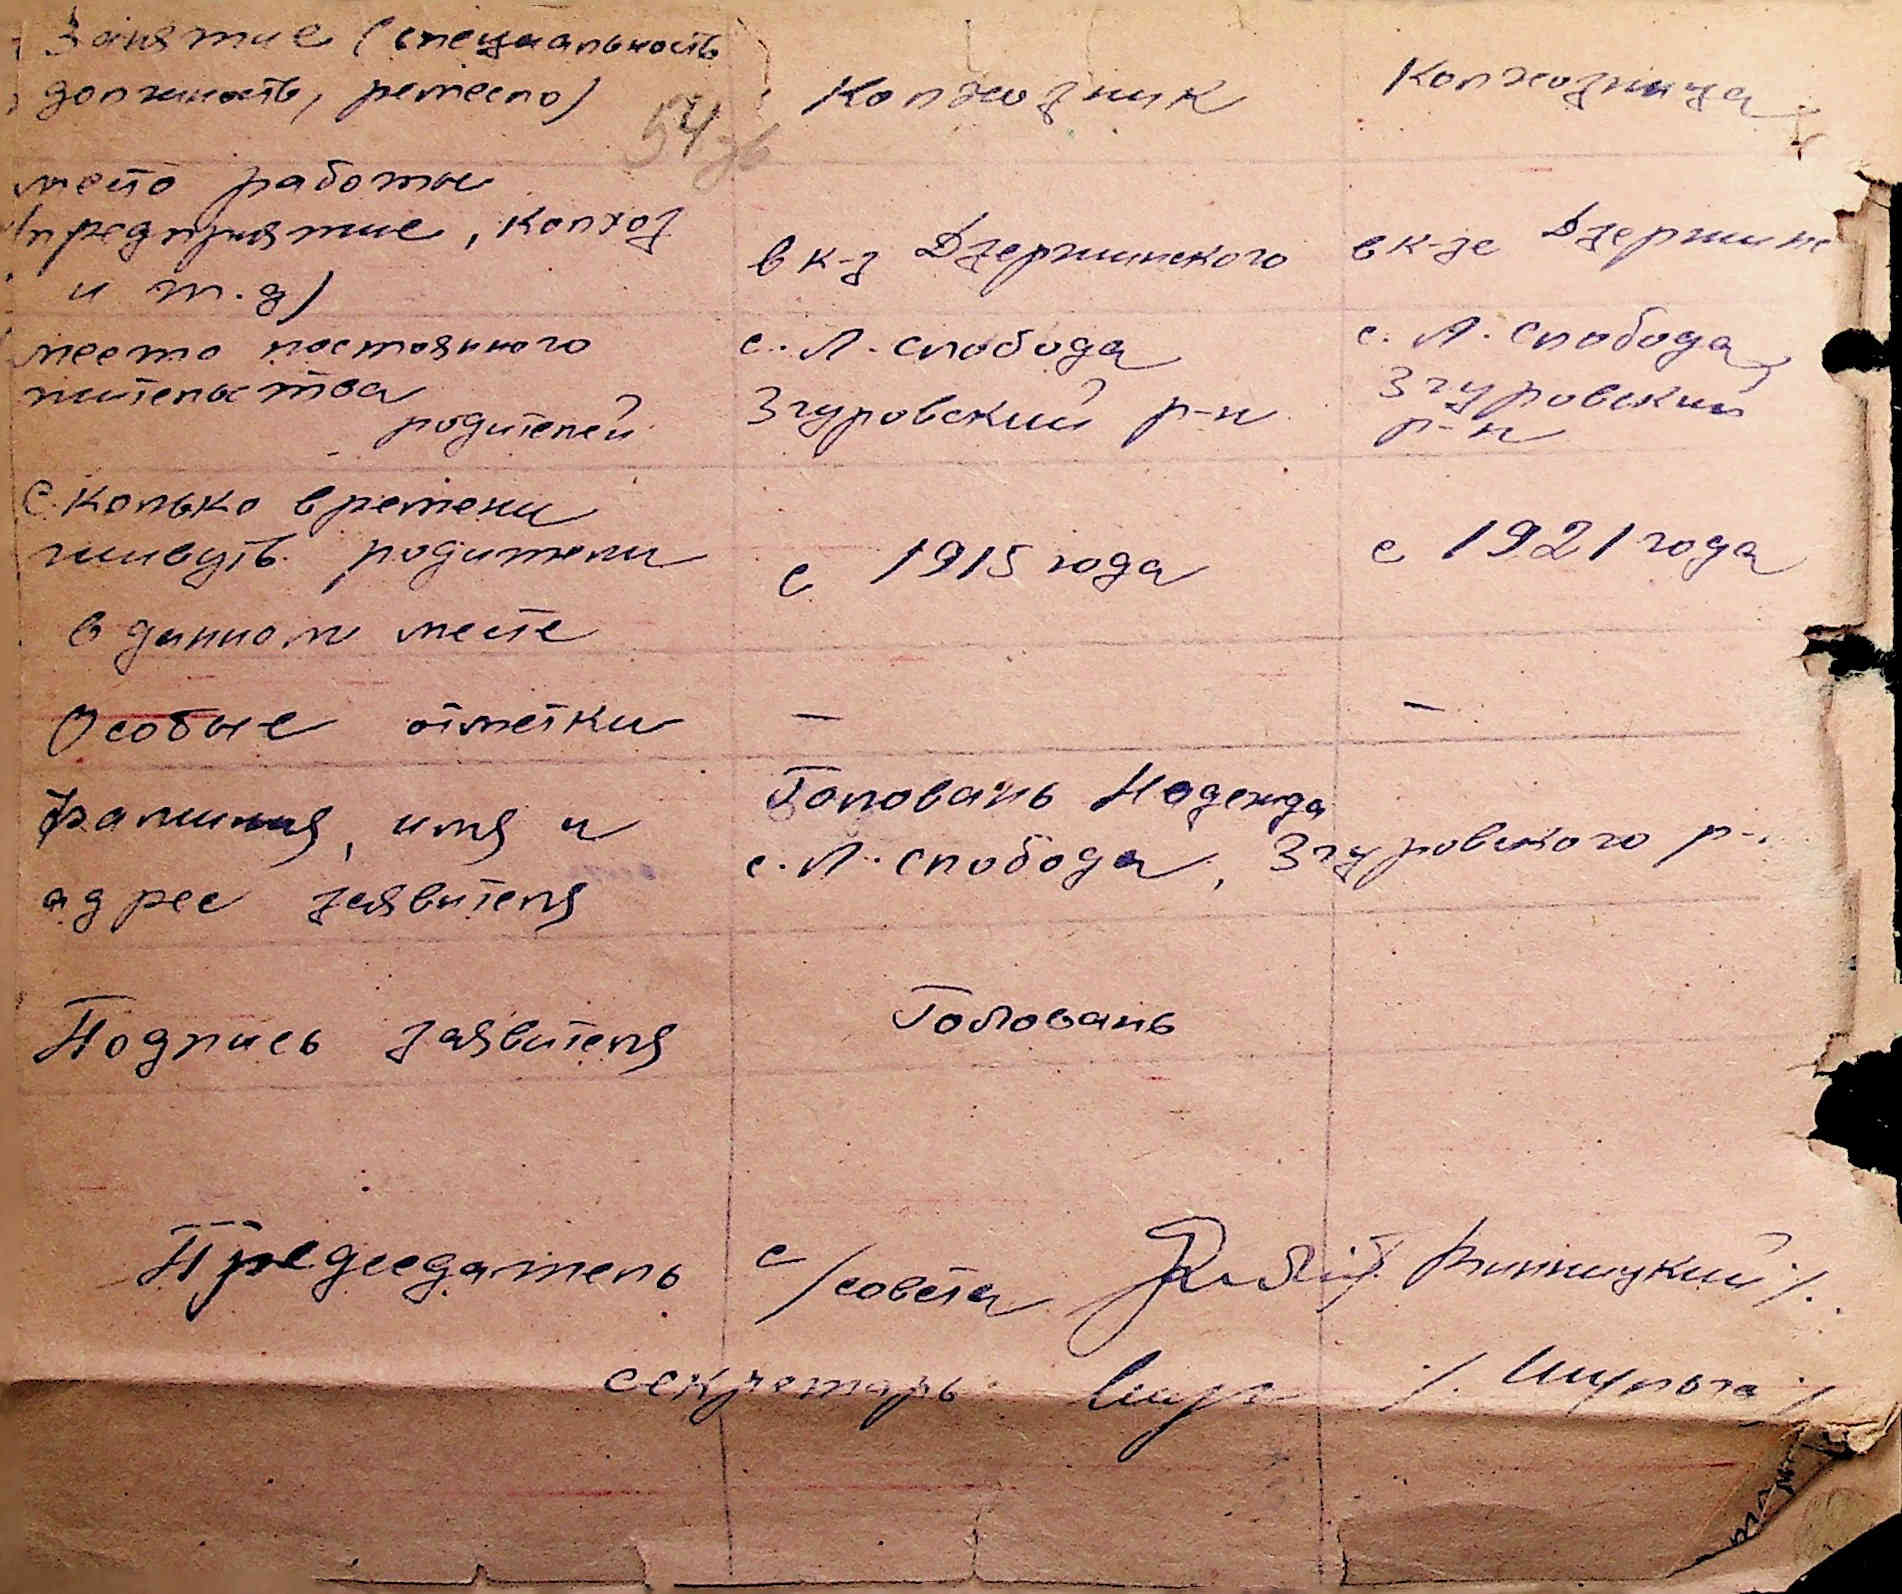 Занятие (специальность
должность, ремесло)
Колхозник
Колхозница
54
место работы
(предприятие, колхоз
и т.д)
в к-з Дзержинского
в к-зе Дзержинс
место постоянного
жительства
родителей
с. Л. слобода
Згуровский р-н
с. Л. слобода
Згуровский
р-н
Сколько времени
живуть родители
в данном месте
с 1915 года
с 1921 года
Особые отметки
—
—
Фамилия, имя и
адрес заявителя
Головань Надежда
с. Л. слобода, Згуровского р-
Подпись заявителя
Головань
Председатель с/совета Винницкий /.
секретарь /. Шульга /